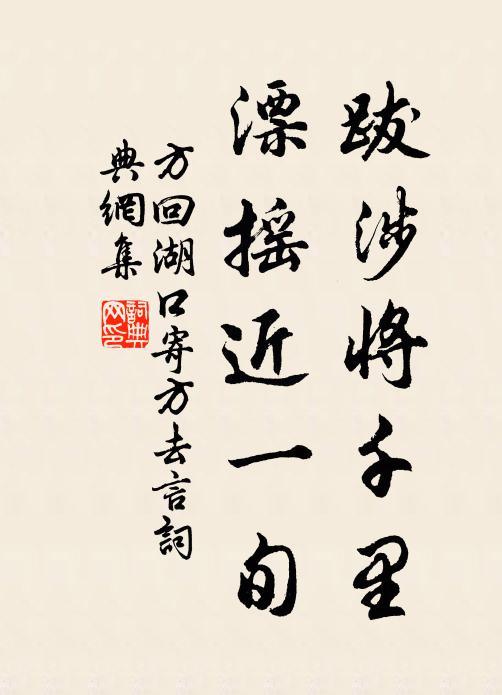 跋涉将千里
漂摇近一旬
方回湖口寄方去言詞
典網集
詞典
网印